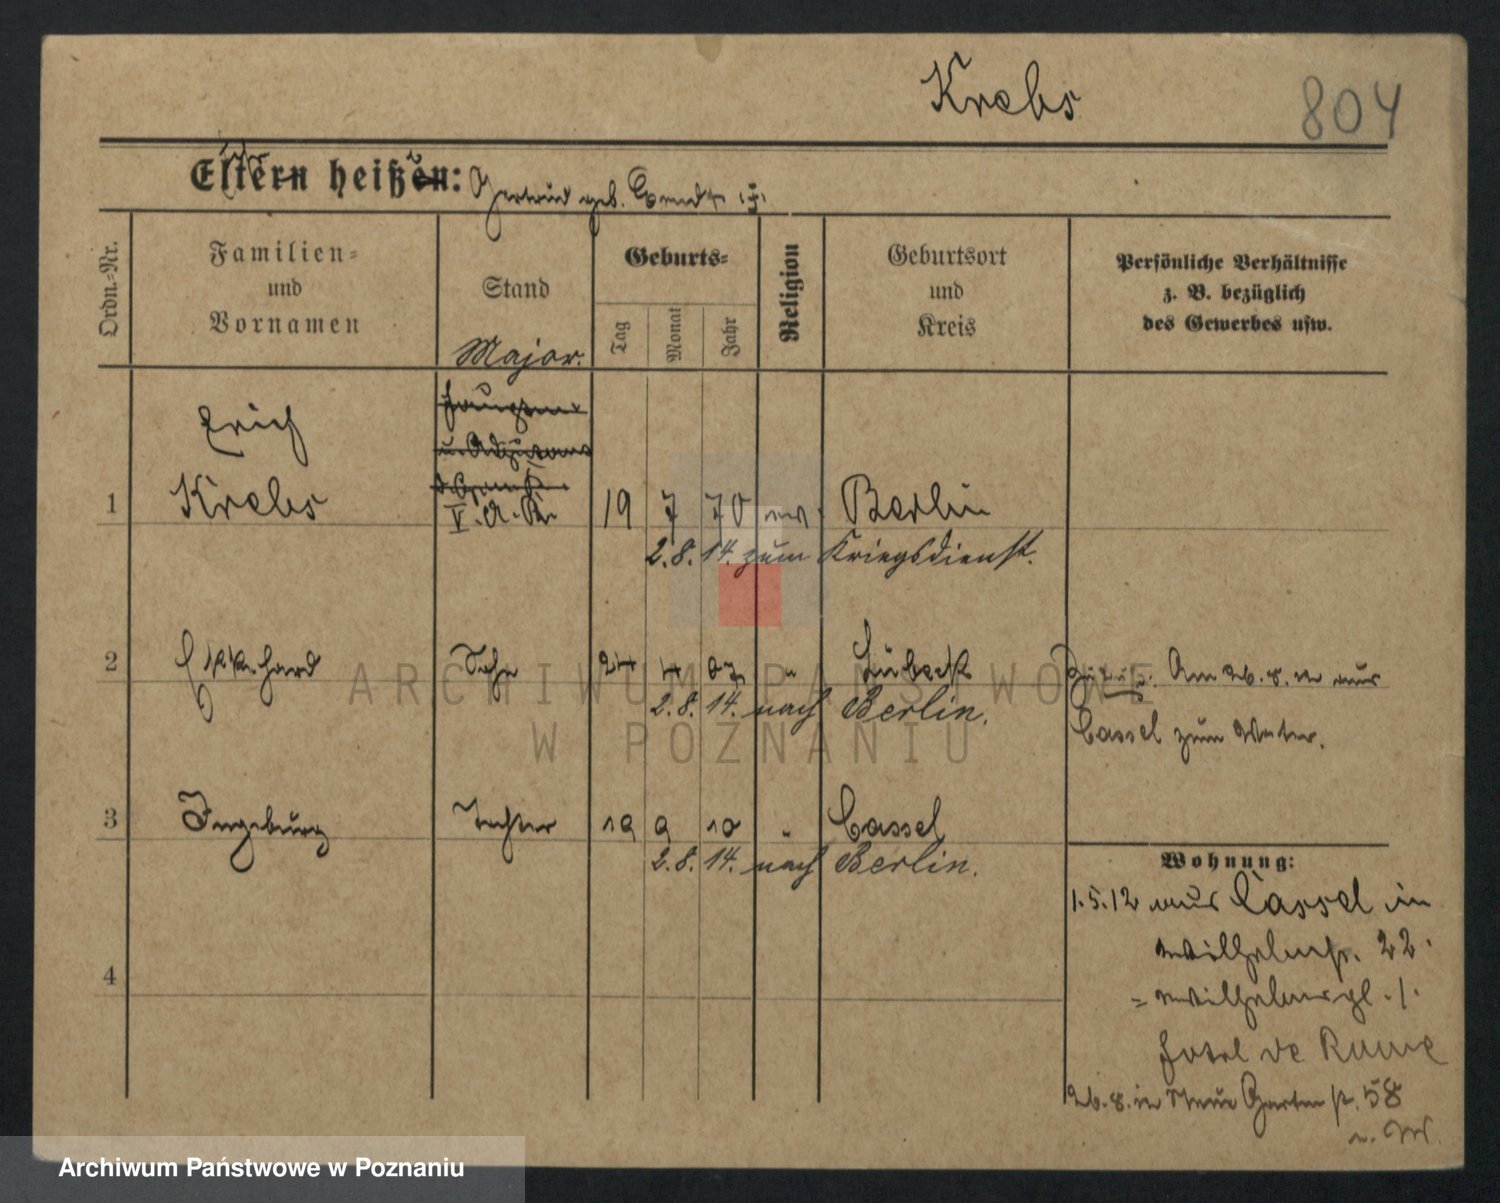 Krebs
804
Eltern heißen: Gertrud geb.
Ordn.-Nr.
Familien-
und
Vornamen
Stand
Geburts-
Tag
Monat
Jahr
Religion
Geburtsort
und
Kreis
Persönliche Verhältnisse
z. B. bezüglich
des Gewerbes usw.
Major.
Erich
u. Adjutant
1 Krebs V. A. K. 19 7 70 ev. Berlin
2.8.14. zum Kriegsdienst.
2 Ekkehard Sohn 24 4 07 " Lübeck
2.8.14. nach Berlin.
Cassel zum Vater.
3 Ingeburg Tochter 19 9 10 " Cassel
2.8.14. nach Berlin.
4
Wohnung:
1.5.12 aus Cassel in
Wilhelmstr. 22.
= Wilhelmspl. 1.
Hotel de Rome
Neue Gartenstr. 58
ARCHIWUM PAŃSTWOWE
W POZNANIU
Archiwum Państwowe w Poznaniu